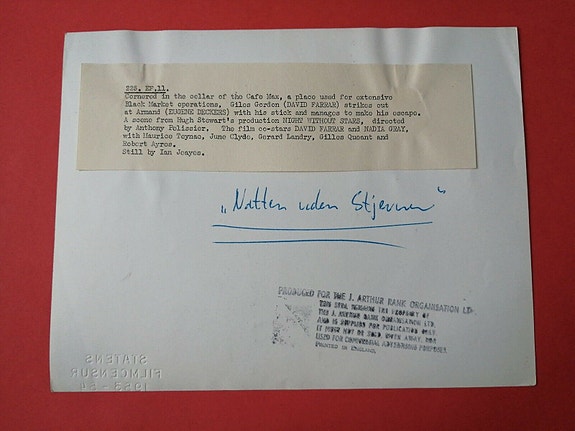 225. EF.11.
Cornered in the cellar of the Cafe Max, a place used for extensive
Black Market operations, Giles Gordon (DAVID FARRAR) strikes out
at Armand (EUGENE DECKERS) with his stick and manages to make his escape.
A scene from Hugh Stewart's production NIGHT WITHOUT STARS, directed
by Anthony Pelissier. The film co-stars DAVID FARRAR and NADIA GRAY,
with Maurice Teynac, June Clyde, Gerard Landry, Gilles Queant and
Robert Ayres.
Still by Ian Jeayes.
„Natten uden Stjerner"
PRODUCED FOR THE J. ARTHUR RANK ORGANISATION LTD
THIS STILL REMAINS THE PROPERTY OF
THE J. ARTHUR RANK ORGANISATION LTD.
AND IS SUPPLIED FOR PUBLICATION ONLY.
IT MUST NOT BE SOLD, GIVEN AWAY, NOR
USED FOR COMMERCIAL ADVERTISING PURPOSES
PRINTED IN ENGLAND.
STATENS
FILMCENSUR
1952 - 54